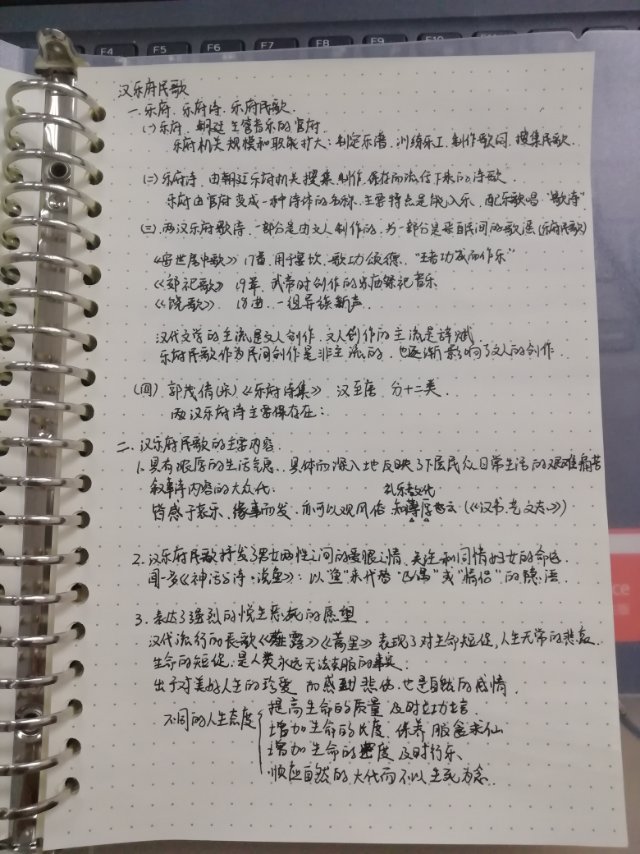 F4 F5 F6 F7 F8 F9 F10
汉乐府民歌
一.乐府、乐府诗、乐府民歌.
(一)乐府. 朝廷主管音乐的官府
乐府机关规模和职能扩大：制定乐谱、训练乐工、制作歌词、搜集民歌.
(二)乐府诗. 由朝廷乐府机关搜集、制作、保存而流传下来的诗歌
乐府由官府变成一种诗体的名称. 主要特点是能入乐、配乐歌唱“歌诗”
(三)两汉乐府歌诗. 一部分是由文人制作的, 另一部分是采自民间的歌谣(乐府民歌)
《安世房中歌》17章, 用于宴饮. 歌功颂德. “王者功成而作乐”
《郊祀歌》19章. 武帝时创作的宗庙祭祀音乐
《饶歌》. 18曲. 一组异族新声.
汉代文学的主流是文人创作, 文人创作的主流是辞赋
乐府民歌作为民间创作是非主流的, 也逐渐影响了文人的创作.
(四) 郭茂倩(宋)《乐府诗集》. 汉至唐. 分十二类.
两汉乐府诗主要保存在：
二. 汉乐府民歌的主要内容
1. 具有浓厚的生活气息. 具体而深入地反映了下层民众日常生活的艰难痛苦
叙事详内容的大众化. 礼乐教化
皆感于哀乐, 缘事而发, 亦可以观风俗, 知薄厚云 (《汉书·艺文志》)
2. 汉乐府民歌抒发了男女两性之间的爱恨之情. 关注和同情妇女的命运
闻一多《神话与诗·说鱼》：以“鱼”来代替“匹偶”或“情侣”的隐语
3. 表达了强烈的悦生恶死的愿望.
汉代流行的丧歌《薤露》《蒿里》表现了对生命短促, 人生无常的悲哀.
生命的短促, 是人类永远无法克服的事实；
出于对美好人生的珍爱 而感到悲伤. 也是自然的感情.
不同的人生态度
提高生命的质量 及时立功立言
增加生命的长度. 保养 服食求仙
增加生命的密度 及时行乐、
顺应自然的大化而不以生死为念.